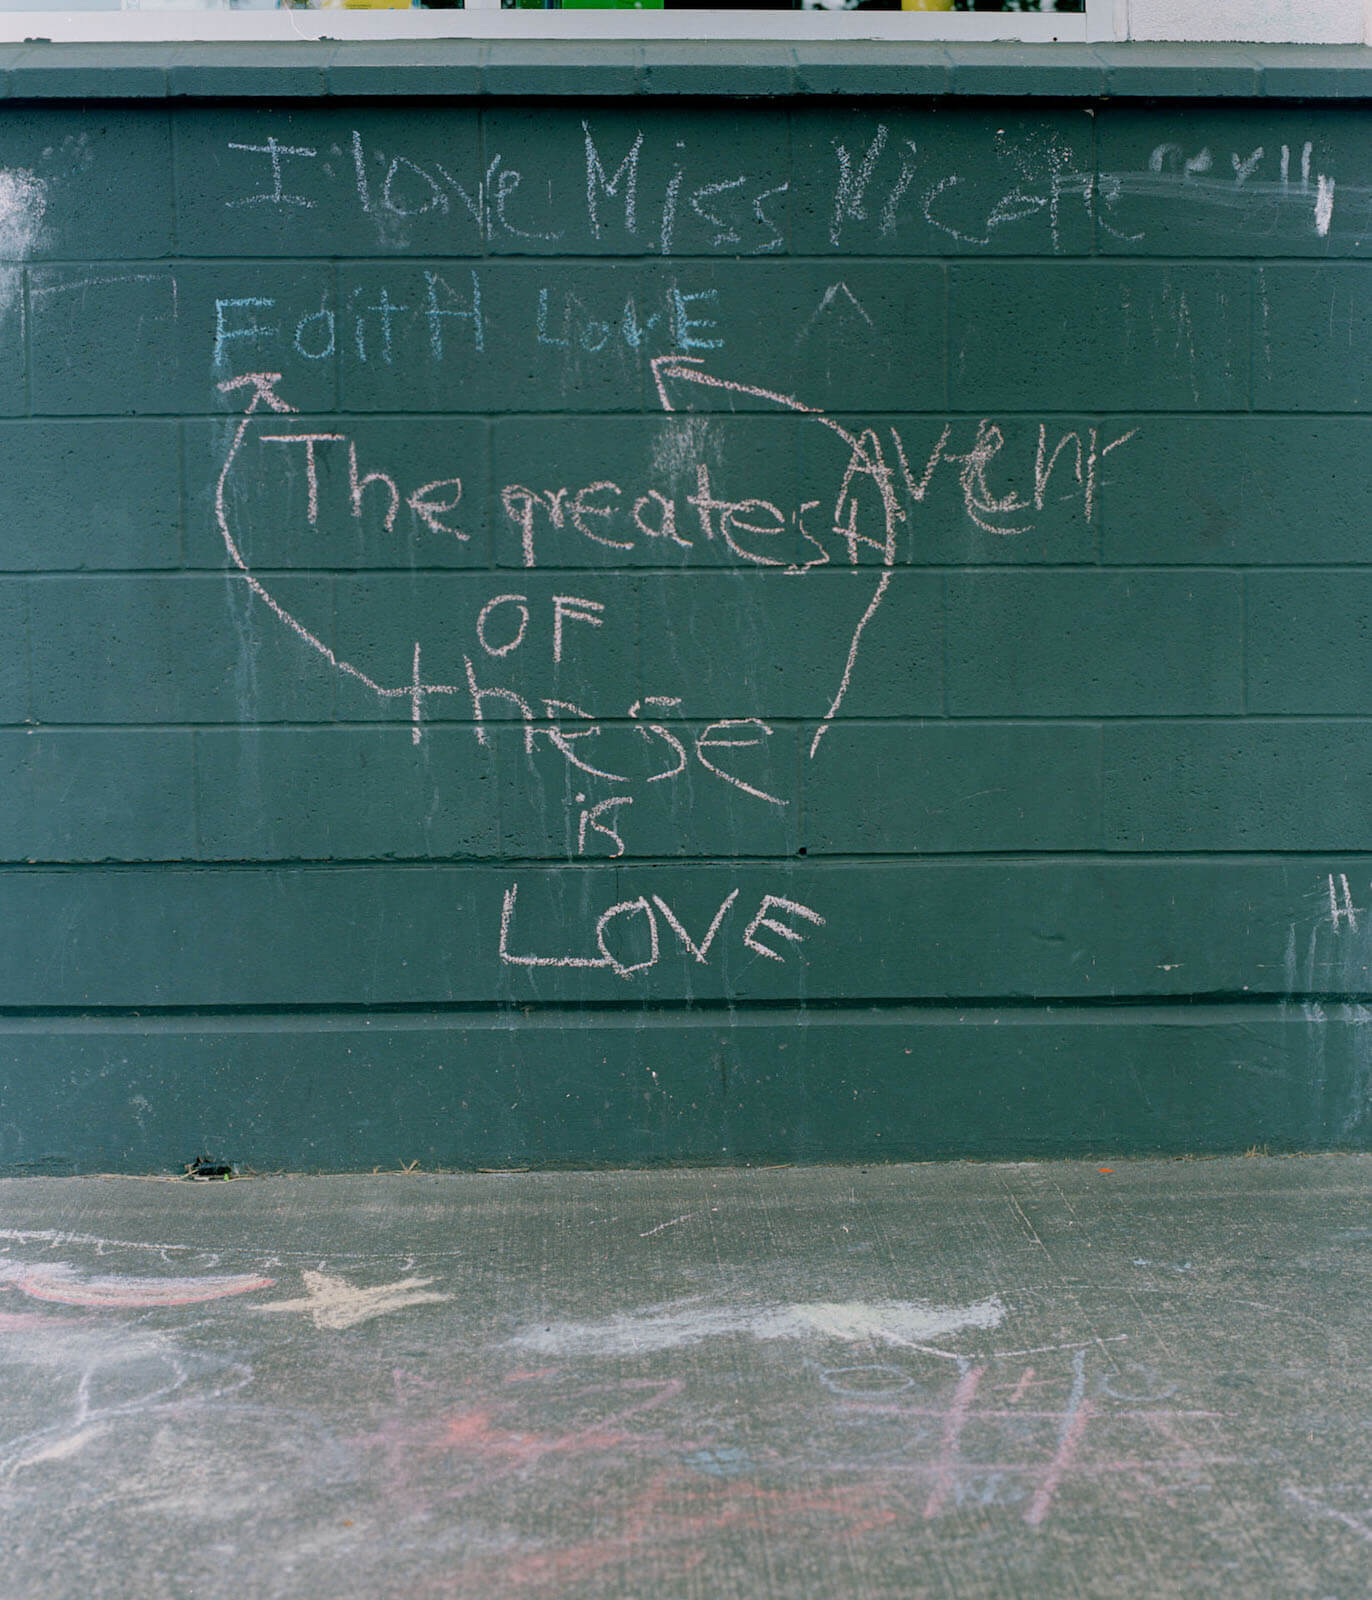 I love Miss Nicole
FaitH LovE
The greatest
OF
these
is
LOVE
H